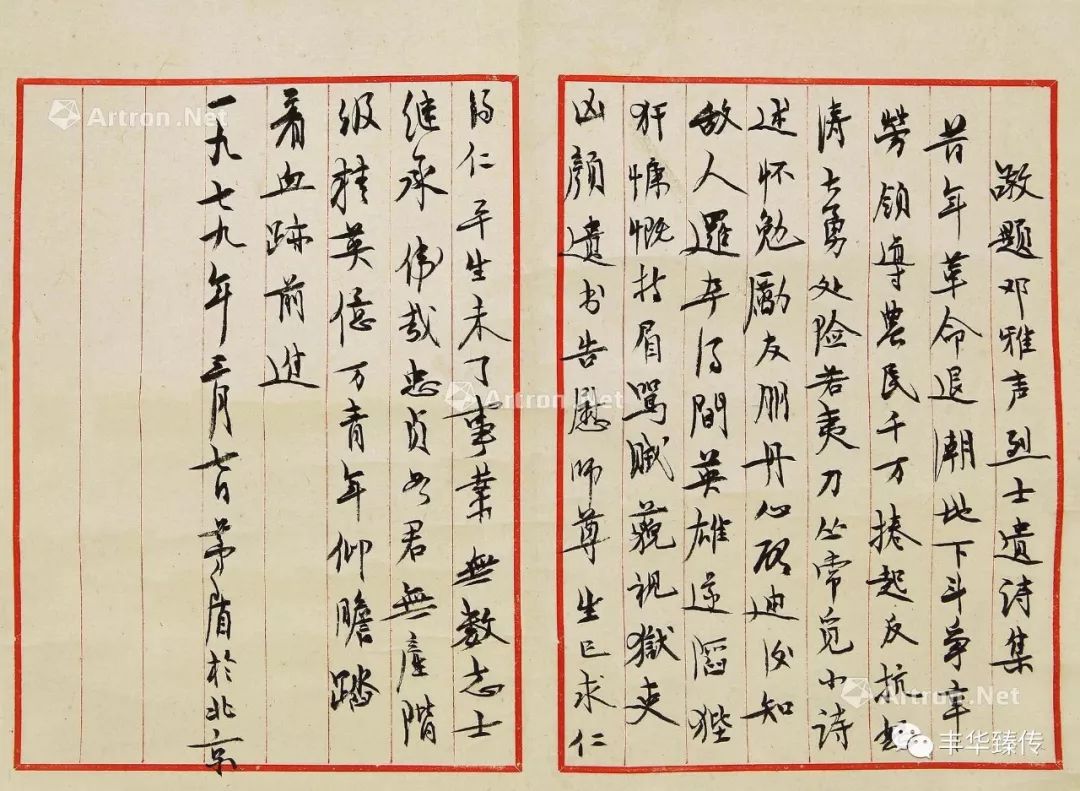 敬题邓雅声烈士遗诗集
昔年革命退潮地下斗争辛
劳领导農民千万捲起反抗怒
涛大勇处险若夷刀丛常觅小诗
述怀勉勵友朋丹心啟迪後知
敌人邏卒得間英雄遂陷狴
犴慷慨持眉罵賊藐視獄吏
凶顏遗书告慰师尊生已求仁
得仁平生未了事業無数志士
继承伟哉忠贞如君無產階
级精英億万青年仰瞻踏
着血跡前進
一九七九年三月七日茅盾於北京
Artron.Net
Artron.Net
Artron.Net
丰华臻传